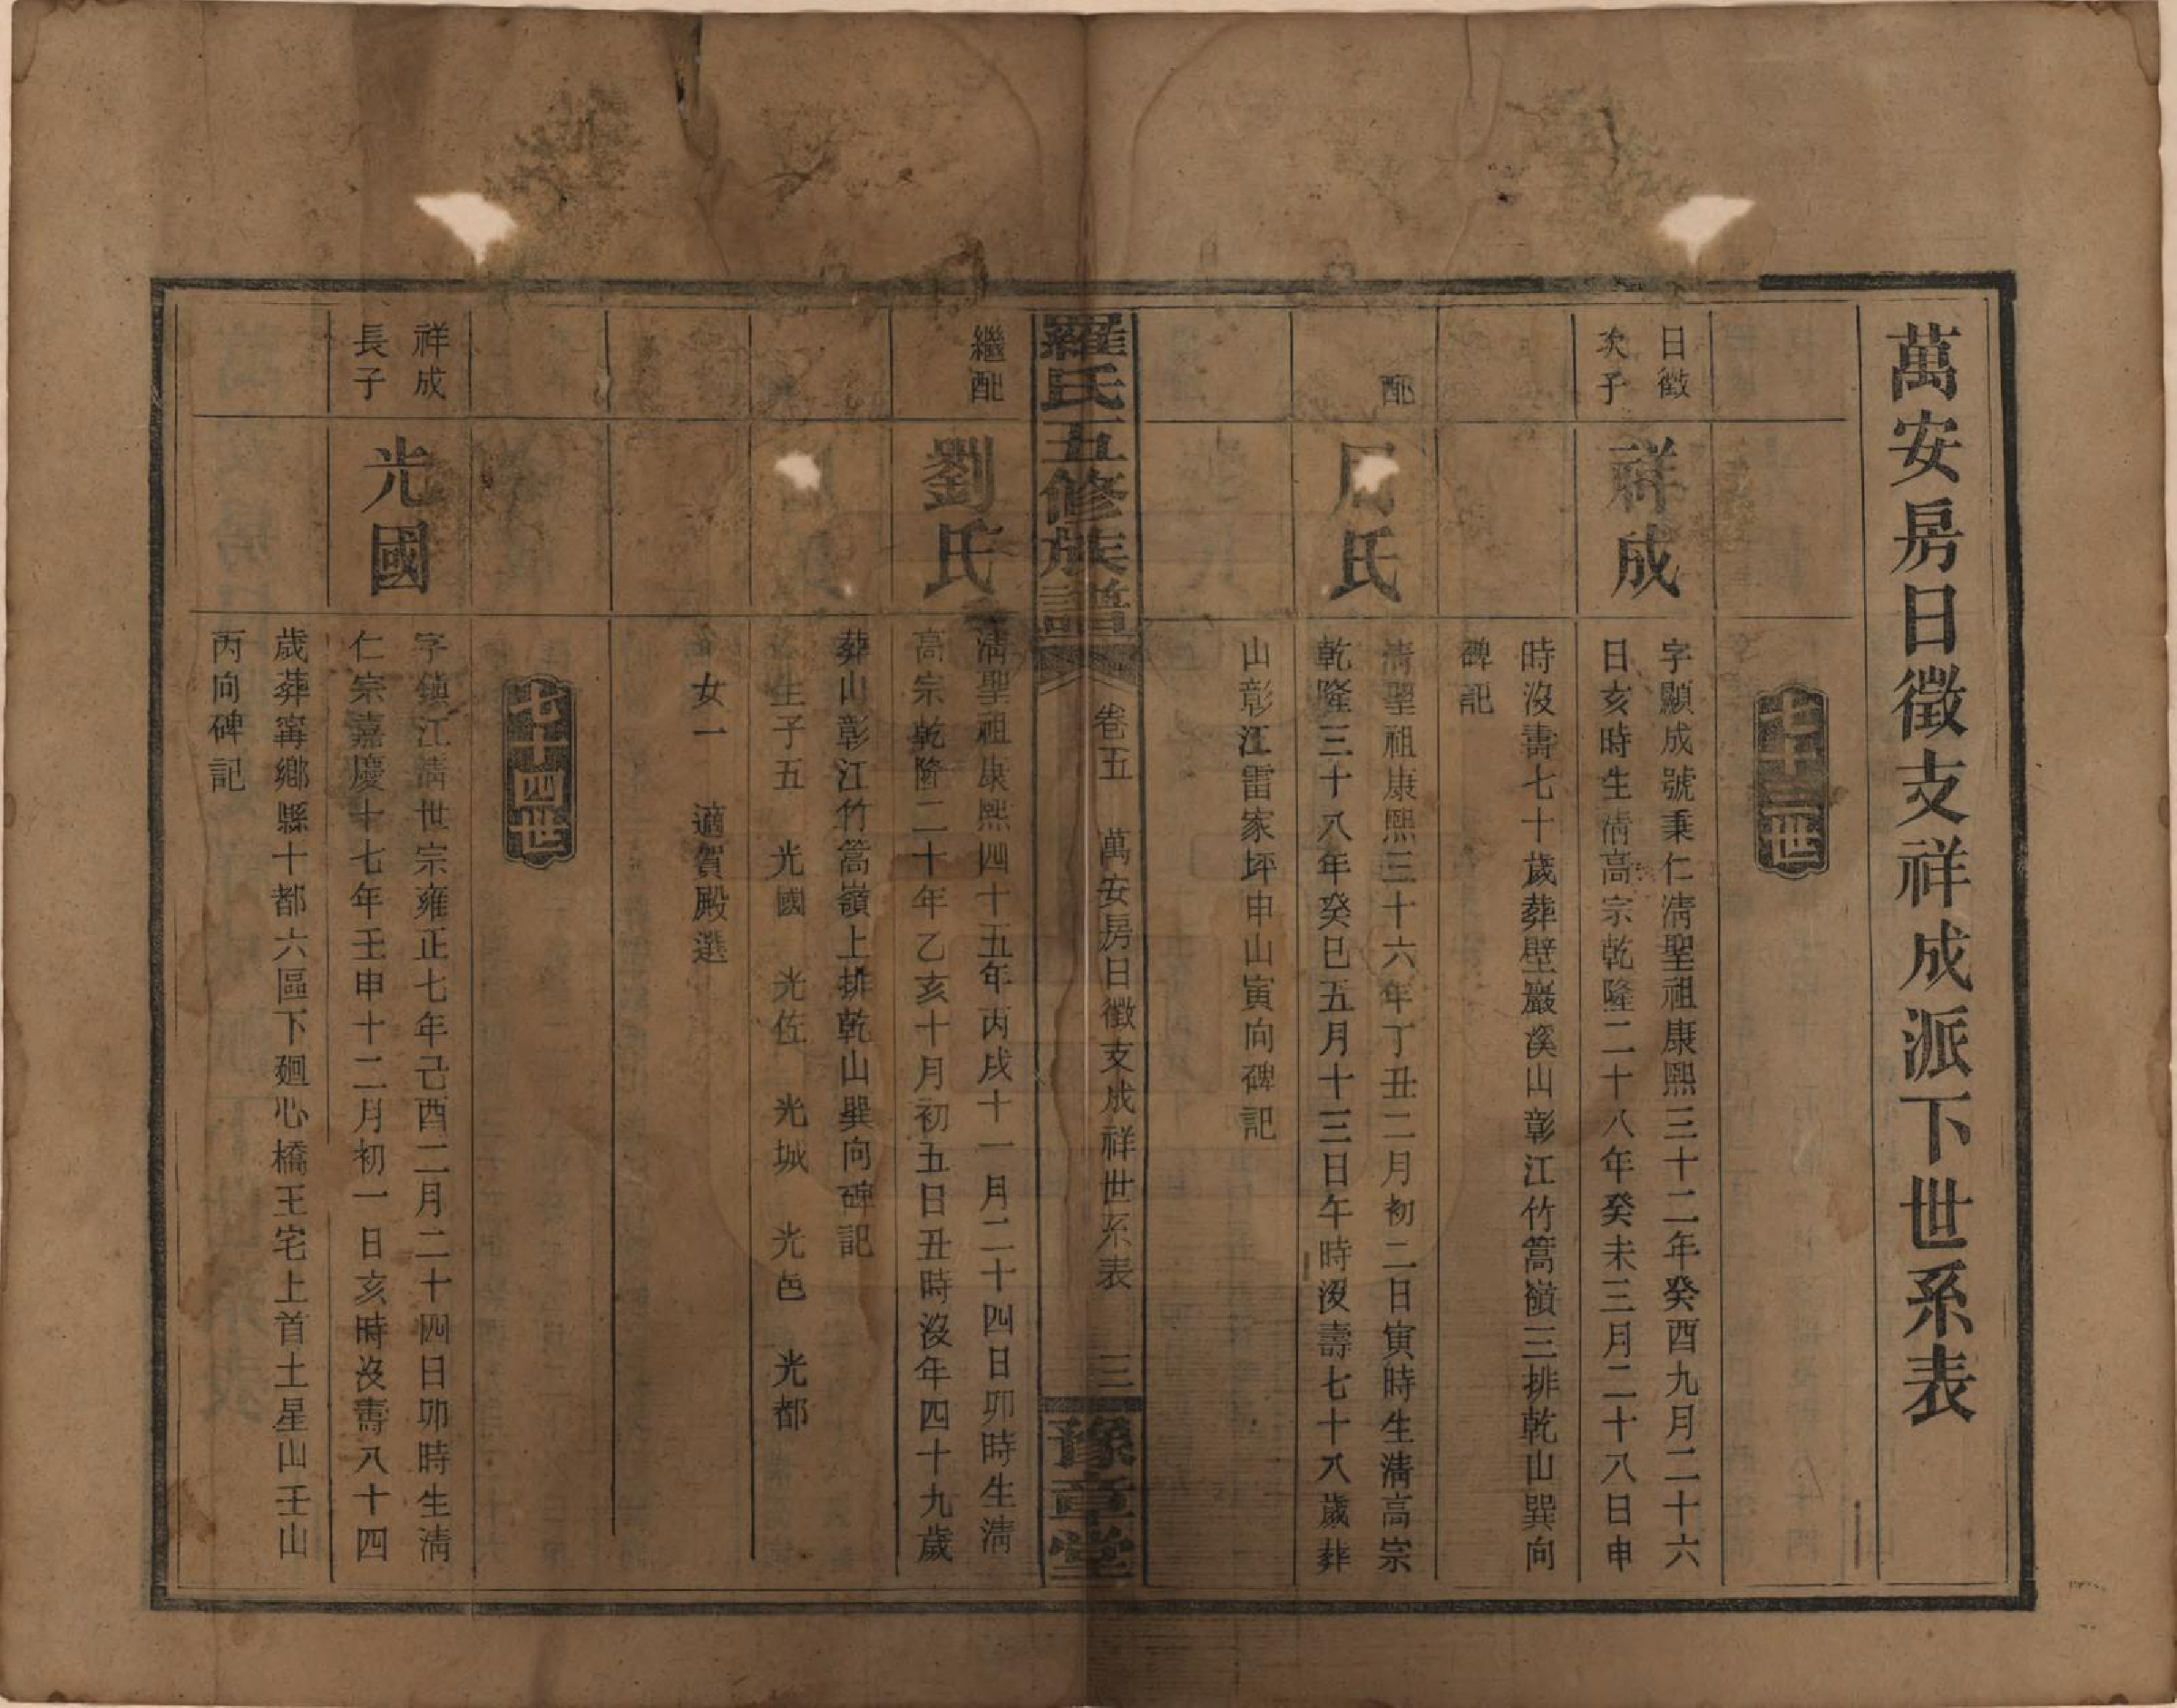 萬安房日徵支祥成派下世系表
七十三世
日徵
次子
祥成
字顯成號秉仁清聖祖康熙三十二年癸酉九月二十六
日亥時生清高宗乾隆二十八年癸未三月二十八日申
時沒壽七十歲葬壁巖溪山彰江竹篙嶺三排乾山巽向
碑記
配
周氏
清聖祖康熙三十六年丁丑二月初二日寅時生清高宗
乾隆三十八年癸巳五月十三日午時沒壽七十八歲葬
山彰江雷家坪申山寅向碑記
羅氏五修族譜
卷五 萬安房日徵支成祥世系表 三
豫章堂
繼配
劉氏
清聖祖康熙四十五年丙戌十一月二十四日卯時生清
高宗乾隆二十年乙亥十月初五日丑時沒年四十九歲
葬山彰江竹篙嶺上排乾山巽向碑記
生子五 光國 光佐 光城 光邑 光都
女一 適賀殿選
七十四世
祥成
長子
光國
字鎮江清世宗雍正七年己酉二月二十四日卯時生清
仁宗嘉慶十七年壬申十二月初一日亥時沒壽八十四
歲葬寗鄉縣十都六區下廻心橋王宅上首土星山壬山
丙向碑記